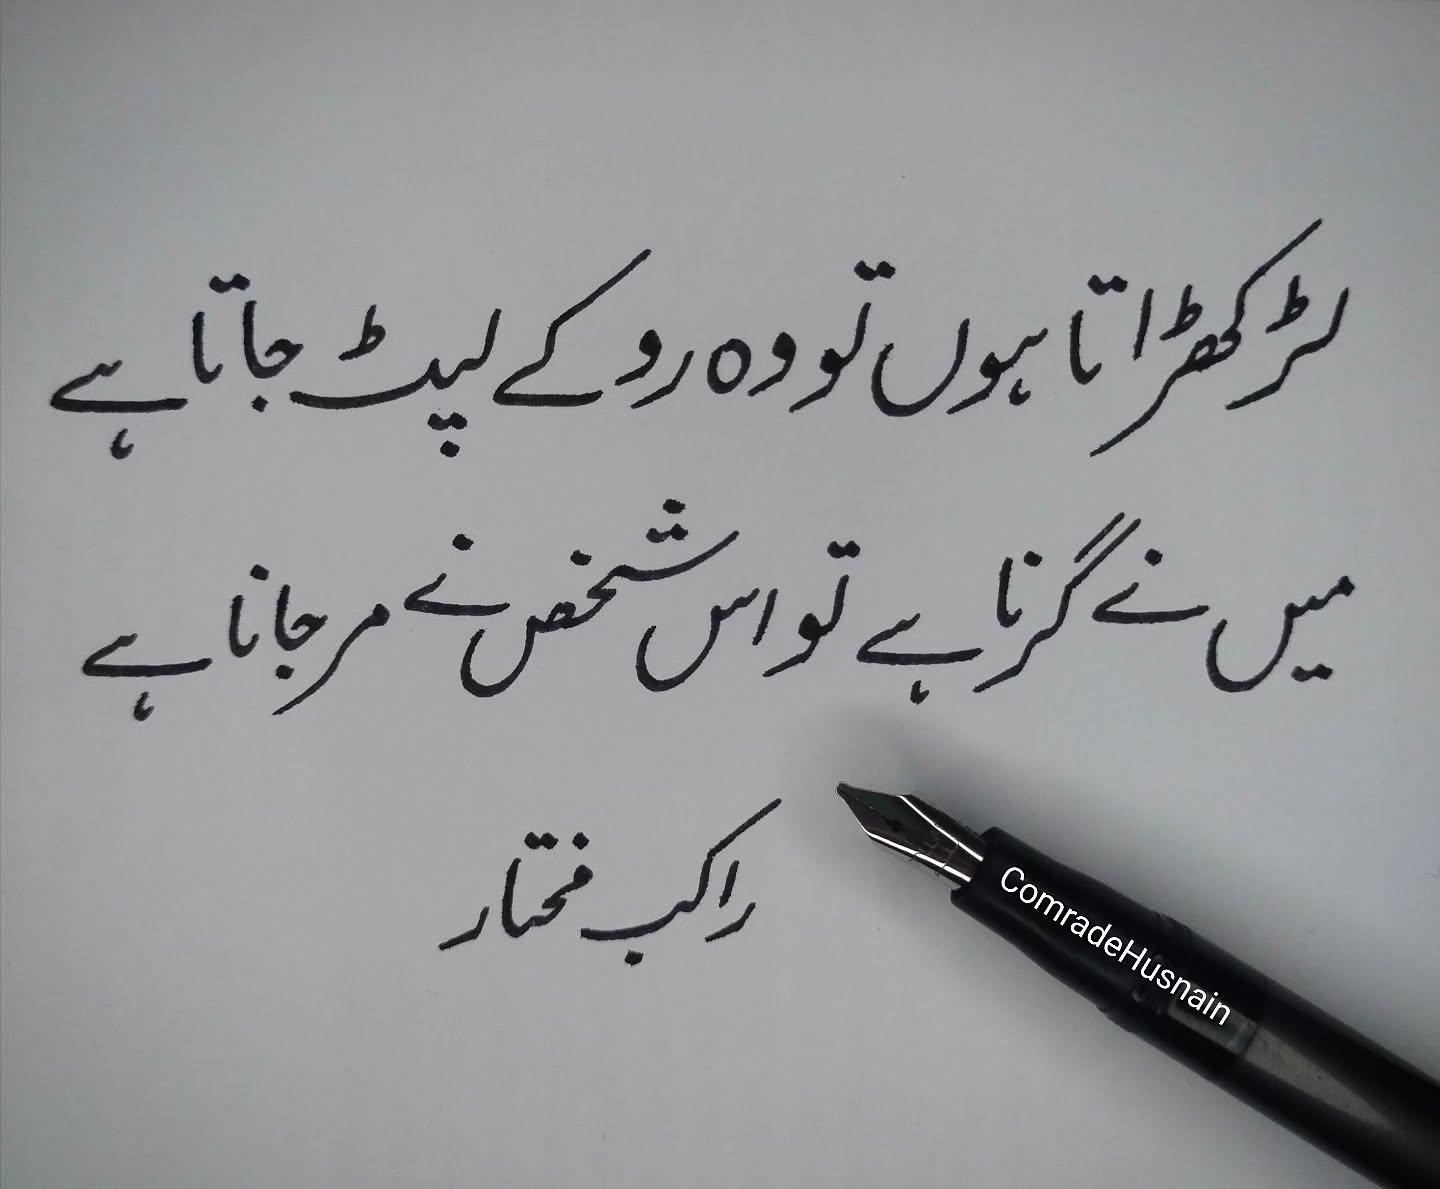 لڑکھڑاتا ہوں تو وہ رو کے لپٹ جاتا ہے
میں نے گرنا ہے تو اس شخص نے مر جانا ہے
راکب مختار
ComradeHusnain